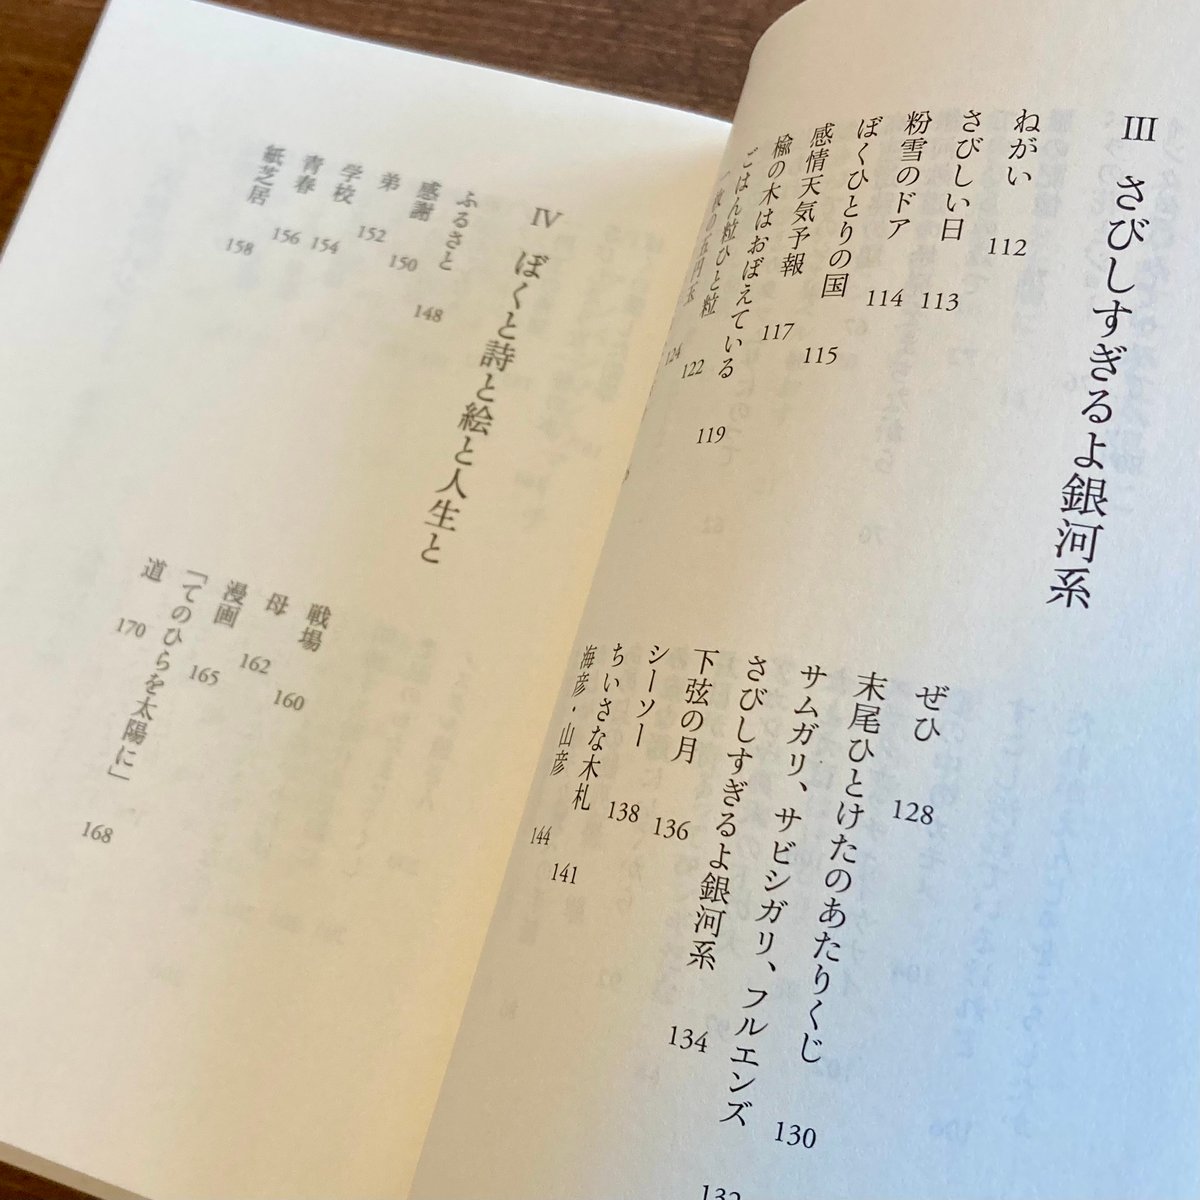 III さびしすぎるよ銀河系
ねがい 112
さびしい日 113
粉雪のドア 114
ぼくひとりの国 115
感情天気予報 117
楡の木はおぼえている 119
ごはん粒ひと粒 122
一枚の五円玉 124
ぜひ 128
末尾ひとけたのあたりくじ 130
サムガリ、サビシガリ、フルエンズ 132
さびしすぎるよ銀河系 134
下弦の月 136
シーソー 138
ちいさな木札 141
海彦・山彦 144
IV ぼくと詩と絵と人生と
ふるさと 148
感謝 150
弟 152
学校 154
青春 156
紙芝居 158
戦場 160
母 162
漫画 165
「てのひらを太陽に」 168
道 170